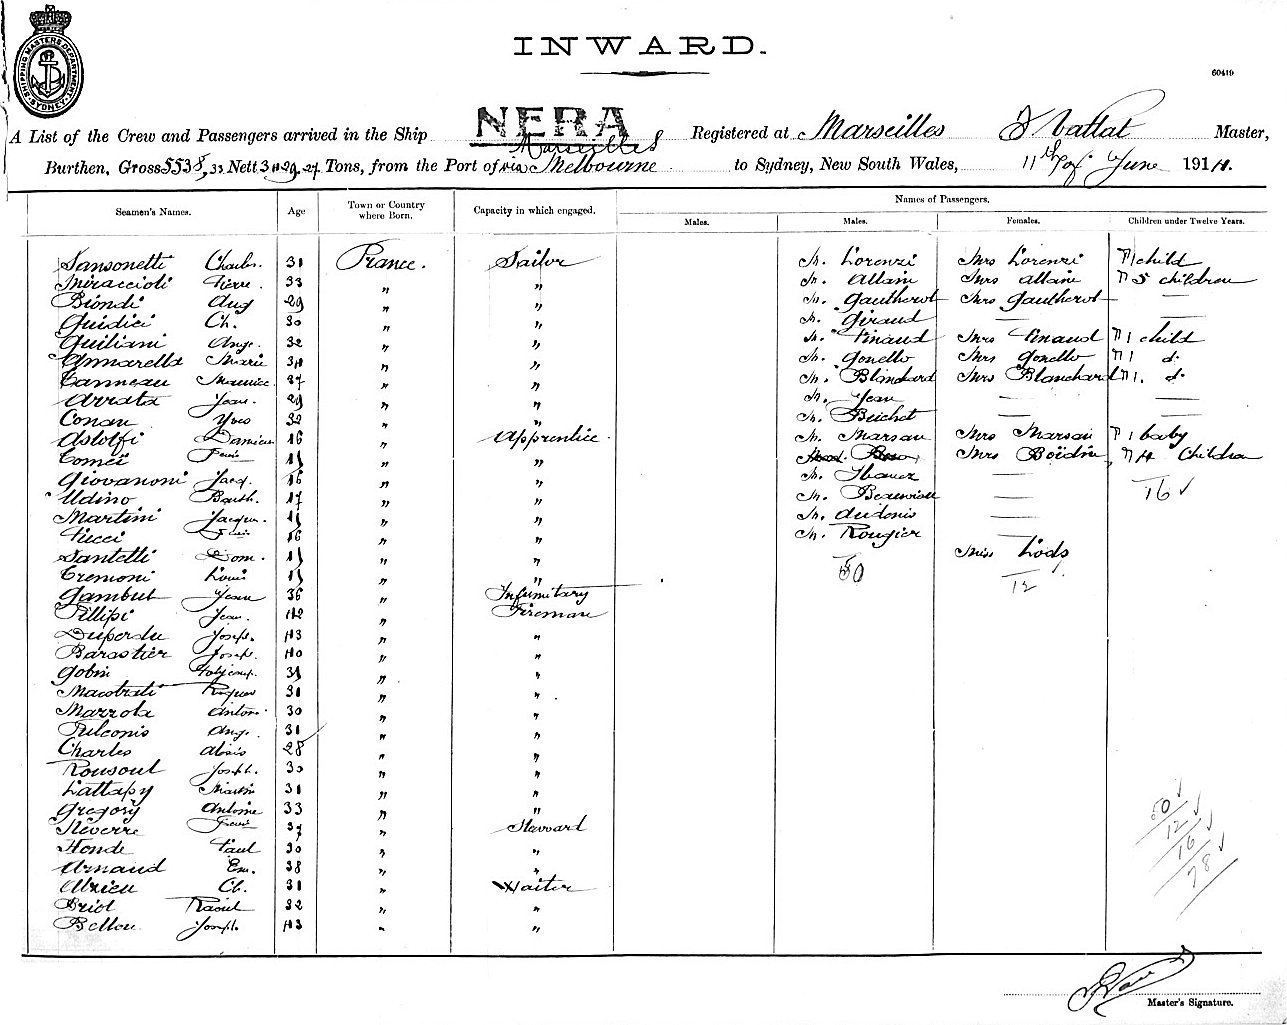 SHIPPING MASTERS DEPARTMENT SYDNEY
INWARD.
60419
A List of the Crew and Passengers arrived in the Ship NERA Registered at Marseilles Master,
Marseilles
Burthen, Gross 5538,33 Nett 3429.27 Tons, from the Port of via Melbourne to Sydney, New South Wales, 11th of June 1914.
Seamen's Names. Age Town or Country where Born. Capacity in which engaged. Names of Passengers.
Males. Males. Females. Children under Twelve Years.
Sansonetti Charles. 31 France. Sailor M. Lorenzi Mrs Lorenzi 1 child
Miraccioli Pierre. 33 " " M. Allain Mrs Allain 5 children
Biondi Aug 29 " " M. Gautherot Mrs Gautherot —
Guidici Ch. 30 " " M. Giraud — —
Giuliani Ange. 32 " " M. Pinaud Mrs Pinaud 1 child
Annarella Marie 34 " " M. Gonello Mrs Gonello 1 d.
Tanneau Maurice 27 " " M. Blanchard Mrs Blanchard 1. d.
Arrata Jean. 29 " " M. Jean — —
Conan Yves 32 " " M. Brichet — —
Astolfi Damien 16 " Apprentice. M. Marsan Mrs Marsan 1 baby
15 " " Mrs Boëdin, 4 Children
Giovanoni Jacq. 16 " " M. Ibanez —
Udino Barth. 17 " " M. Beauvisse — 16
Martini Jacques. 15 " " M. Audonis —
Pucci 16 " " M. Rougier —
Santelli Dom. 15 " " Miss Lods
Cremoni Louis 15 " " 50 12
Gambut Jean 36 " Infirmitary
Fillipi Jean. 42 " Fireman
Duperdu Joseph. 43 " "
Barastier Joseph. 40 " "
Gobin 31 " "
Maestrati 31 " "
Marrota Antoni. 30 " "
Fulconis Ang. 31 " "
Charles Aloïs 28 " "
Rousoul Joseph. 30 " "
Lattapy Martin 31 " "
Gregory Antoine 33 " "
37 " Steward 50
Honde Paul 30 " " 12
Arnaud Em. 38 " " 16
Alrieu Ch. 31 " Waiter 78
Briol Raoul 32 " "
Bellou Joseph. 43 " "
Master's Signature.